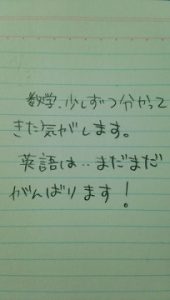 数学、少しずつ分かって
きた気がします。
英語は‥まだまだ
がんばります！